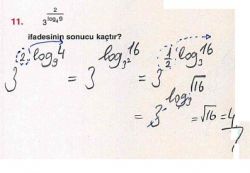 11. 3^(2/log₄9)
ifadesinin sonucu kaçtır?
3^(2·log₉4) = 3^(log₃²16) = 3^(1/2·log₃16)
= 3^(log₃√16) = √16 = 4